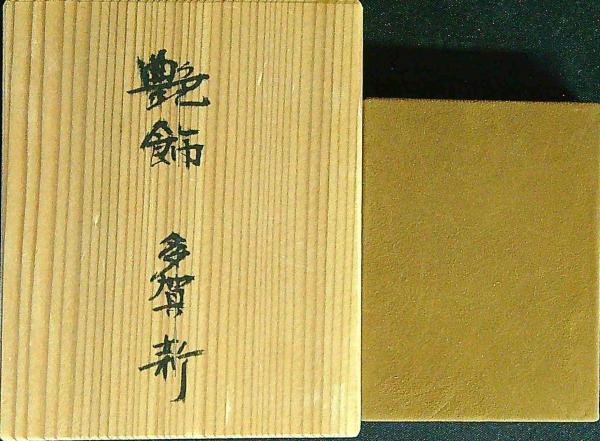 艶飾 多賀新